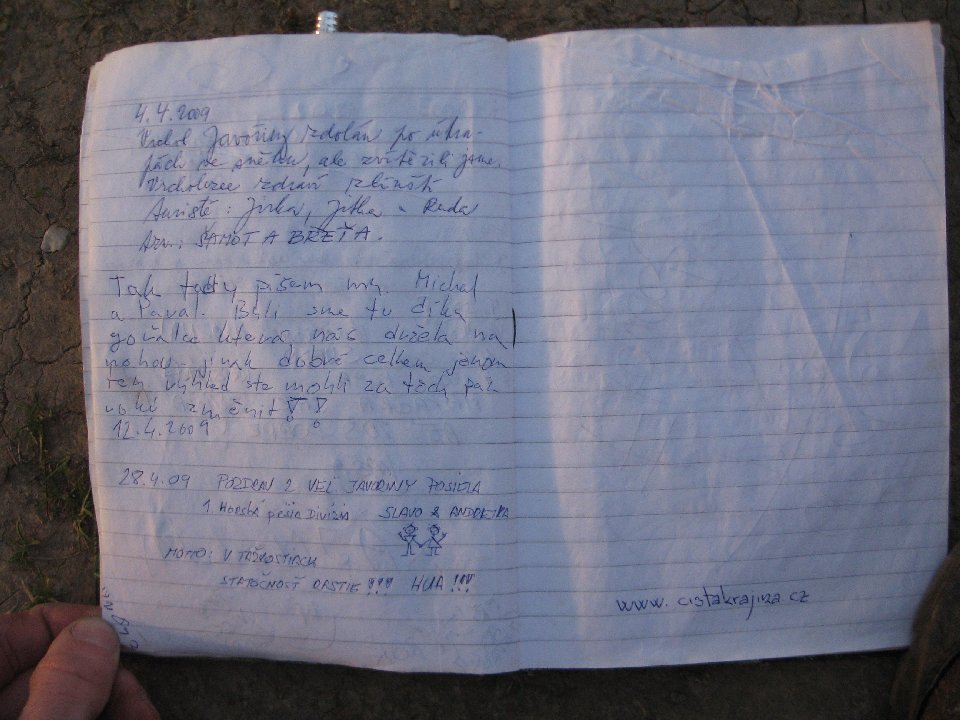 4.4.2009
Vrchol Javořiny zdolán po útra-
pách ve sněhu, ale zvítězili jsme.
zdraví
Turisté: Jirka, Jitka a Rada
ŠAMOT A BŘEŤA.
Tak tady píšem my. Michal
a Paval. Byli sme tu díka
gořalce která nás držela na
nohou jinak dobré celkem jenom
ten výhled ste mohli za těch pár
roků změnit!!
12.4.2009
28.4.09 POZDRAV Z VEĽ JAVORINY POSIELA
1. Horská pešia Divízia SLAVO & ANDREJKA
MOTTO: V ŤAŽKOSTIACH
STATOČNOSŤ RASTIE!!! HUA!!!
www.cistakrajina.cz